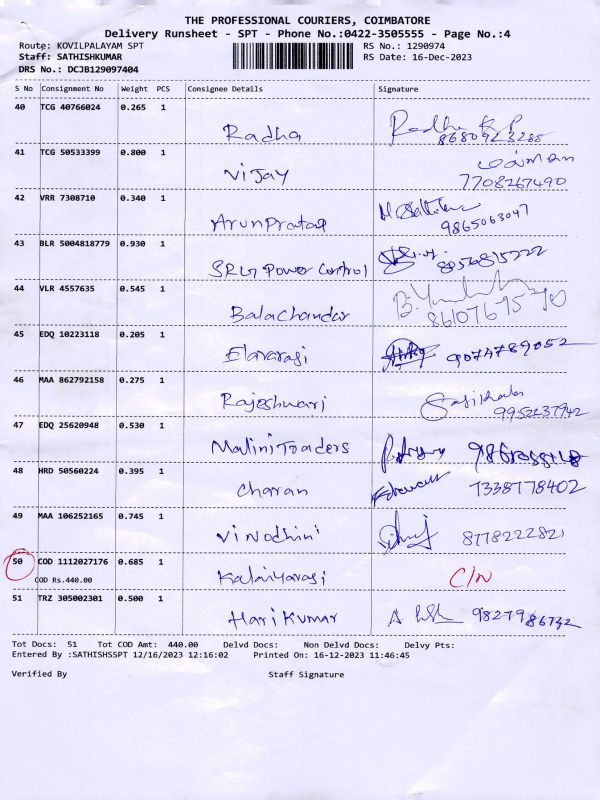 THE PROFESSIONAL COURIERS, COIMBATORE
Delivery Runsheet - SPT - Phone No.:0422-3505555 - Page No.:4
Route: KOVILPALAYAM SPT RS No.: 1290974
Staff: SATHISHKUMAR RS Date: 16-Dec-2023
DRS No.: DCJB129097404
S No Consignment No Weight PCS Consignee Details Signature
40 TCG 40766024 0.265 1
Radha Radha K P
8680923288
41 TCG 50533399 0.800 1
Vijay
7708267490
42 VRR 7308710 0.340 1
ArunPratap 9865063047
43 BLR 5004818779 0.930 1
SRG Power Control 8056815222
44 VLR 4557635 0.545 1
Balachandar
45 EDQ 10223118 0.205 1
Elavarasi 9074789052
46 MAA 862792158 0.275 1
Rajeshwari
9952237942
47 EDQ 25620948 0.530 1
Malini Traders
48 HRD 50560224 0.395 1
Charan 7338778402
49 MAA 106252165 0.745 1
Vinodhini 8778222821
50 COD 1112027176 0.685 1
COD Rs.440.00 Kalaiyarasi C/N
51 TRZ 305002301 0.500 1
HariKumar 9827986732
Tot Docs: 51 Tot COD Amt: 440.00 Delvd Docs: Non Delvd Docs: Delvy Pts:
Entered By :SATHISHSSPT 12/16/2023 12:16:02 Printed On: 16-12-2023 11:46:45
Verified By Staff Signature